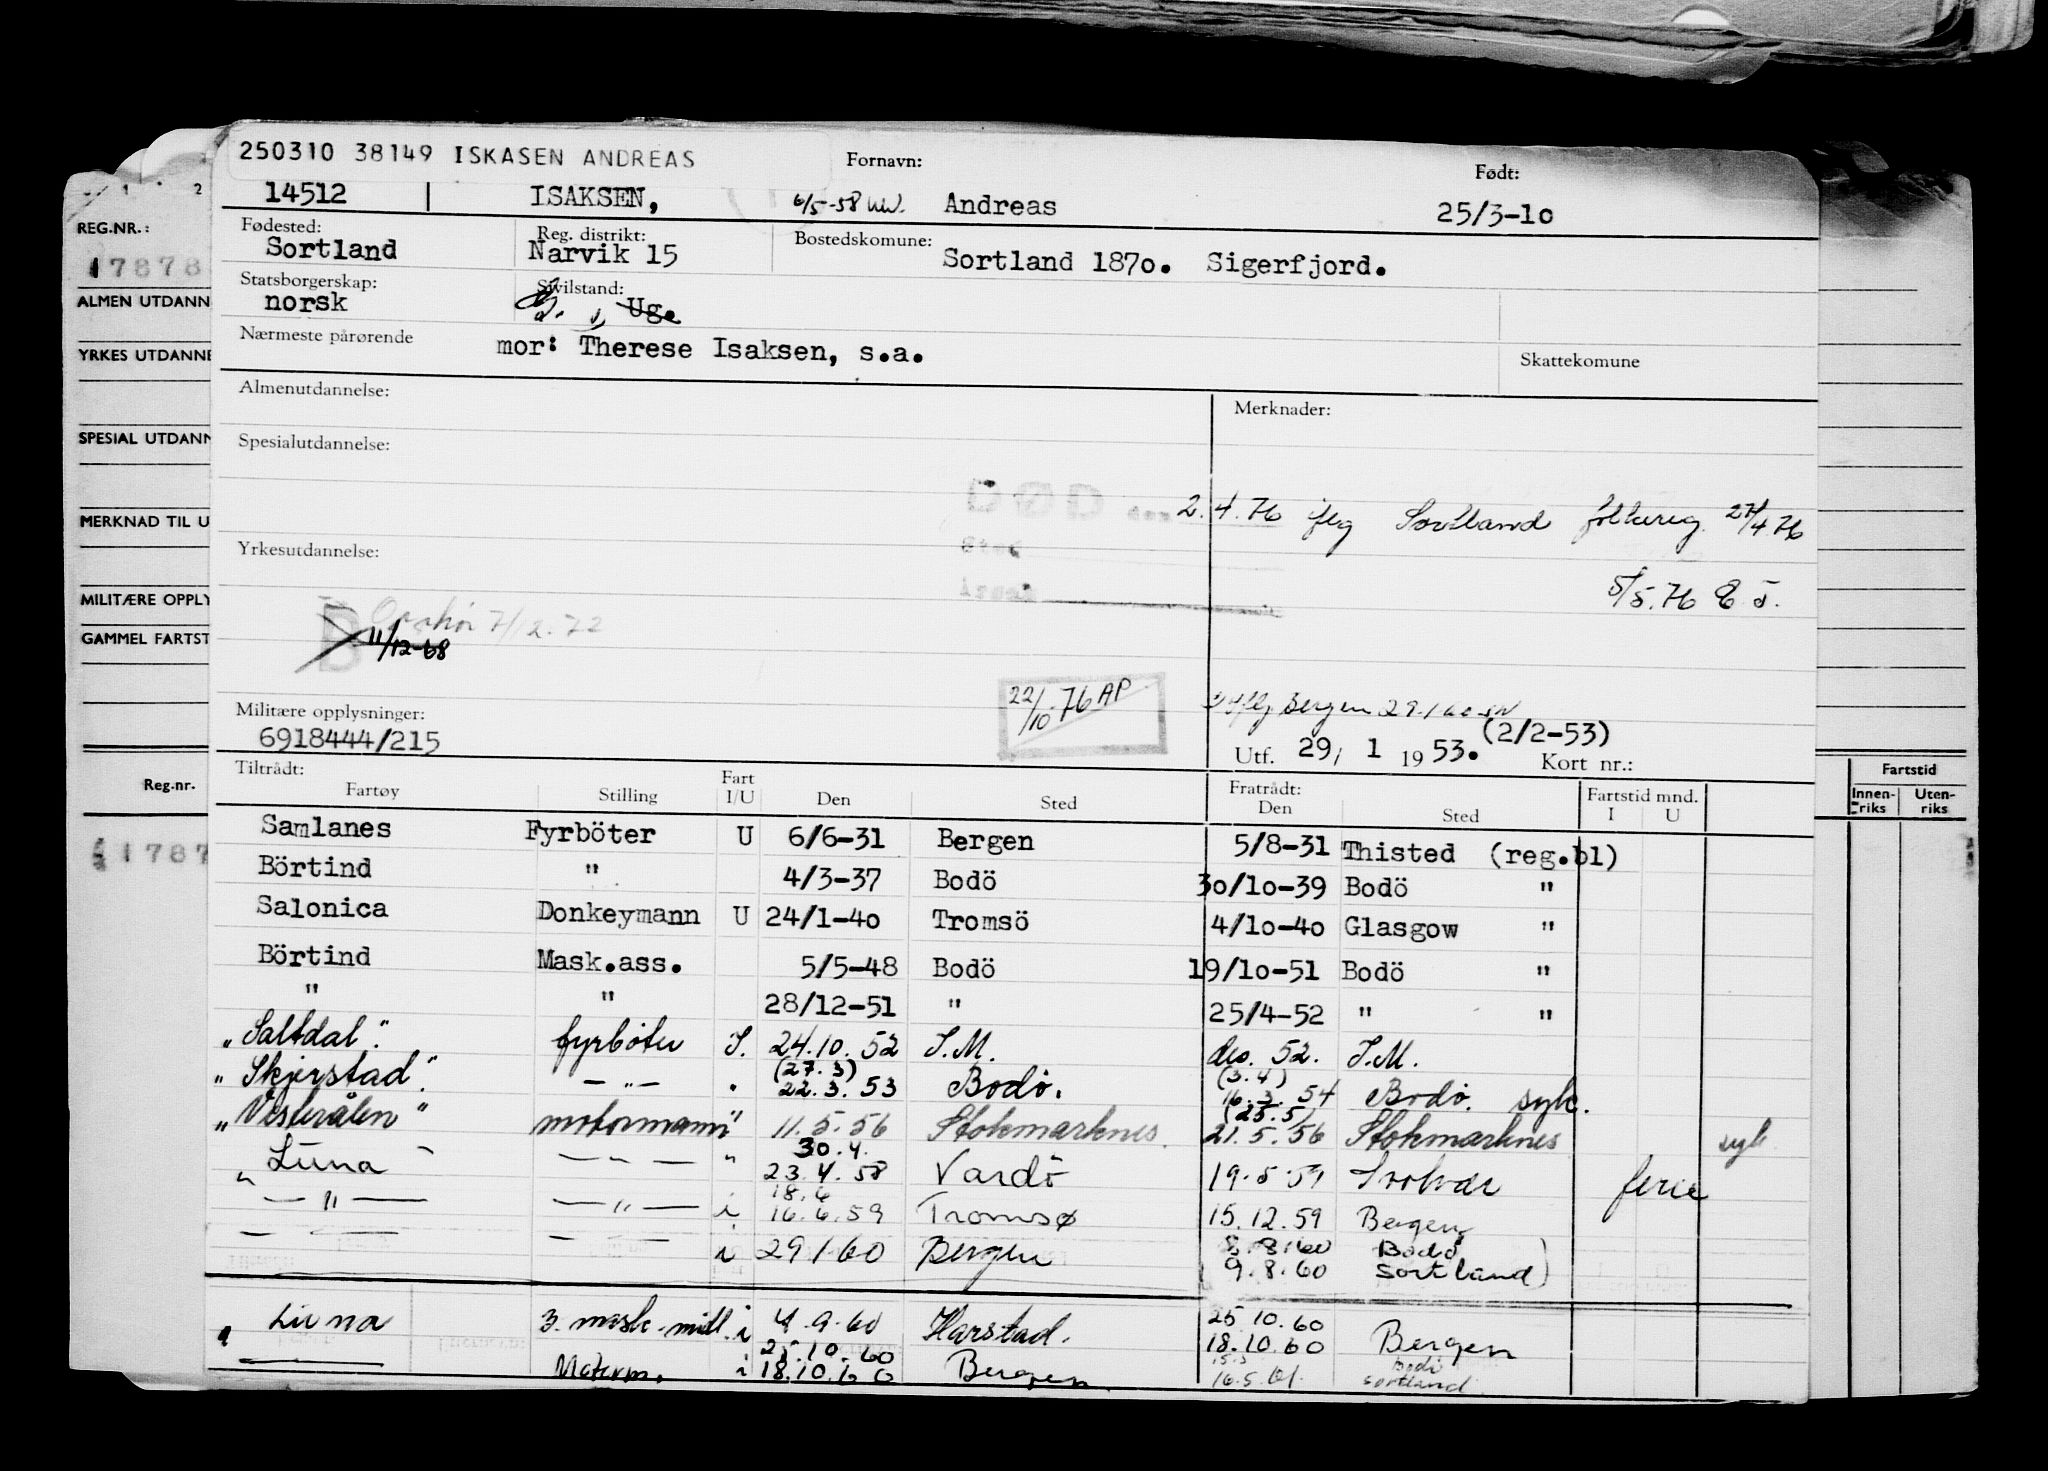 250310 38149 ISKASEN ANDREAS
Fornavn:
Født:
14512 ISAKSEN, 6/5-58 Andreas 25/3-10
Fødested:
Sortland
Reg. distrikt:
Narvik 15
Bostedskomune:
Sortland 1870. Sigerfjord.
Statsborgerskap:
norsk
Sivilstand:
Ug.
Nærmeste pårørende
mor: Therese Isaksen, s.a.
Skattekomune
Almenutdannelse:
Merknader:
Spesialutdannelse:
2.4.76 iflg Sortland folkereg. 27/4 76
5/5.76 E.J.
Yrkesutdannelse:
7/12.72
B
11/12-68
22/10.76 AP
iflg Bergen 29.1 60
Militære opplysninger:
6918444/215
(2/2-53)
Utf. 29/ 1 1953.
Kort nr.:
Tiltrådt:
Fartøy Stilling Fart I/U Den Sted
Fratrådt:
Den Sted
Fartstid mnd.
I U
Samlanes Fyrböter U 6/6-31 Bergen 5/8-31 Thisted (reg.bl)
Börtind " 4/3-37 Bodö 30/10-39 Bodö "
Salonica Donkeymann U 24/1-40 Tromsö 4/10-40 Glasgow "
Börtind Mask.ass. 5/5-48 Bodö 19/10-51 Bodö "
" " 28/12-51 " 25/4-52 " "
"Saltdal". fyrböter I. 24.10.52 I.M. des. 52. I.M.
(27.3) (3.4)
"Skjerstad". — " — " 22.3.53 Bodö. 16.3.54 Bodö. syk.
(25.5)
"Vesterålen" motormann " 11.5.56 Stokmarknes. 21.5.56 Stokmarknes syk
30.4.
" Luna — " — " 23.4.58 Vardö 19.5.59 Svolvær ferie
18.6
— " — — " — i 16.6.59 Tromsø 15.12.59 Bergen
— — i 29 1 60 Bergen 8.8.60 Bodö
9.8.60 Sortland)
Luna 3. mask.mdl. i 4.9.60 Harstad. 25.10.60
18.10.60 Bergen
25.10.60
Motorm. i 18.10.60 Bergen 15.5 Bodö
16.5.61. Sortland
REG.NR.:
17878
ALMEN UTDANN
YRKES UTDANNE
SPESIAL UTDANN
MERKNAD TIL U
MILITÆRE OPPLY
GAMMEL FARTST
Reg.nr.
1787
Fartstid
Innen-riks Uten-riks